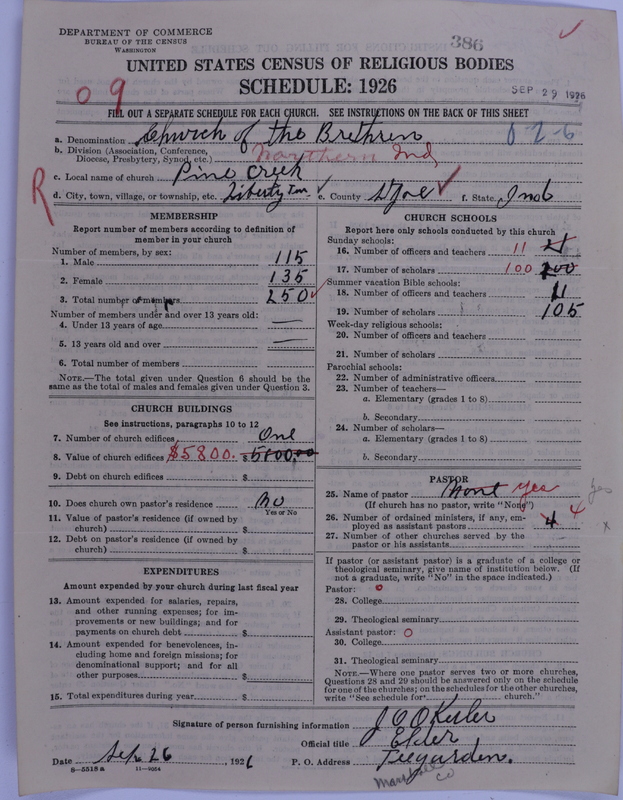 DEPARTMENT OF COMMERCE
BUREAU OF THE CENSUS
WASHINGTON
386
UNITED STATES CENSUS OF RELIGIOUS BODIES
SCHEDULE: 1926
SEP 29 1926
09
FILL OUT A SEPARATE SCHEDULE FOR EACH CHURCH. SEE INSTRUCTIONS ON THE BACK OF THIS SHEET
a. Denomination Church of the Brethren 0-2-6
b. Division (Association, Conference, Diocese, Presbytery, Synod, etc.) Northern Ind
c. Local name of church Pine Creek
R
d. City, town, village, or township, etc. Liberty Tn e. County St Joe f. State Ind
MEMBERSHIP
Report number of members according to definition of
member in your church
Number of members, by sex:
1. Male 115
2. Female 135
3. Total number of members 250
Number of members under and over 13 years old:
4. Under 13 years of age —
5. 13 years old and over —
6. Total number of members
NOTE.—The total given under Question 6 should be the
same as the total of males and females given under Question 3.
CHURCH BUILDINGS
See instructions, paragraphs 10 to 12
7. Number of church edifices One
8. Value of church edifices $5800. $
9. Debt on church edifices $
10. Does church own pastor's residence No
Yes or No
11. Value of pastor's residence (if owned by
church) $
12. Debt on pastor's residence (if owned by
church) $
EXPENDITURES
Amount expended by your church during last fiscal year
13. Amount expended for salaries, repairs,
and other running expenses; for im-
provements or new buildings; and for
payments on church debt $
14. Amount expended for benevolences, in-
cluding home and foreign missions; for
denominational support; and for all
other purposes $
15. Total expenditures during year $
CHURCH SCHOOLS
Report here only schools conducted by this church
Sunday schools:
16. Number of officers and teachers 11
17. Number of scholars 100
Summer vacation Bible schools:
18. Number of officers and teachers 11
19. Number of scholars 105
Week-day religious schools:
20. Number of officers and teachers
21. Number of scholars
Parochial schools:
22. Number of administrative officers
23. Number of teachers—
a. Elementary (grades 1 to 8)
b. Secondary
24. Number of scholars—
a. Elementary (grades 1 to 8)
b. Secondary
PASTOR
25. Name of pastor None yes yes
(If church has no pastor, write "None")
26. Number of ordained ministers, if any, em-
ployed as assistant pastors 4 4
27. Number of other churches served by the
pastor or his assistants x
If pastor (or assistant pastor) is a graduate of a college or
theological seminary, give name of institution below. (If
not a graduate, write "No" in the space indicated.)
Pastor: o
28. College
29. Theological seminary
Assistant pastor: O
30. College
31. Theological seminary
NOTE.—Where one pastor serves two or more churches,
Questions 28 and 29 should be answered only on the schedule
for one of the churches; on the schedules for the other churches,
write "See schedule for church."
Signature of person furnishing information
Official title Elder
Date Sep 26, 1926 P. O. Address Teegarden.
8-5518a 11-9024
Marshall Co